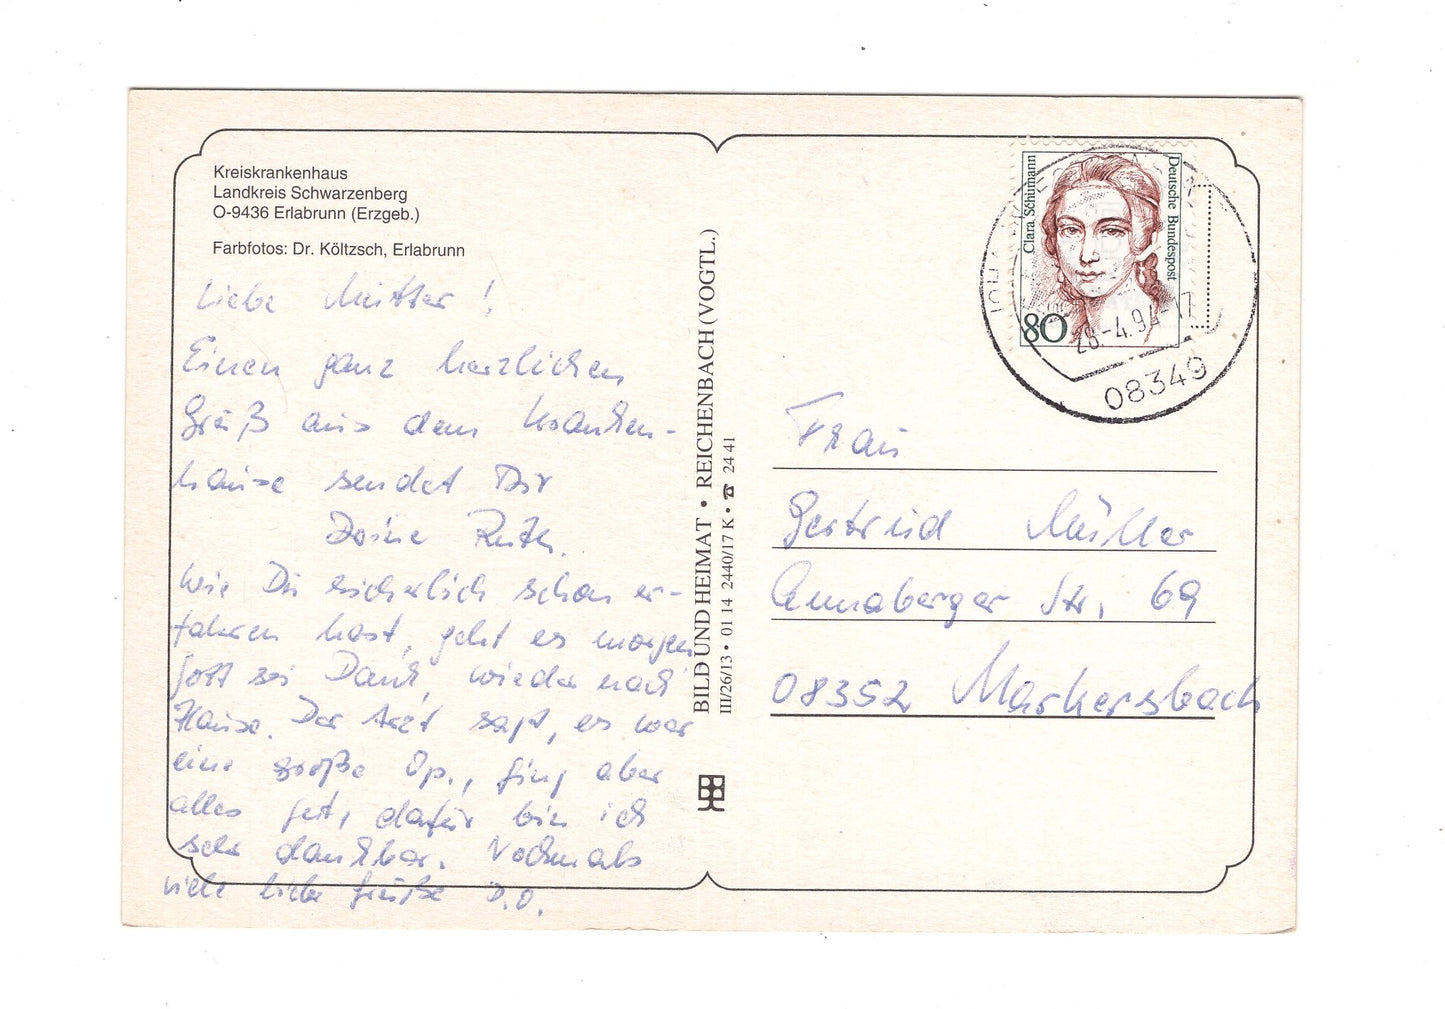 Kreiskrankenhaus
Landkreis Schwarzenberg
O-9436 Erlabrunn (Erzgeb.)
Farbfotos: Dr. Költzsch, Erlabrunn
Liebe Mutter!
Einen ganz herzlichen
Gruß aus dem Kranken-
hause sendet Dir
Deine Ruth.
Wie Du sicherlich schon er-
fahren hast, geht es morgen
Gott sei Dank, wieder nach
Hause. Der Arzt sagt, es war
eine große Op., ging aber
alles gut, dafür bin ich
sehr dankbar. Nochmals
viele liebe Grüße D.O.
BILD UND HEIMAT • REICHENBACH (VOGTL.)
III/26/13 • 01 14 2440/17 K • ☎ 24 41
Clara Schumann
Deutsche Bundespost
80
28.-4.94-17
08349
Frau
Gertrud Müller
Annaberger Str. 69
08352 Markersbach